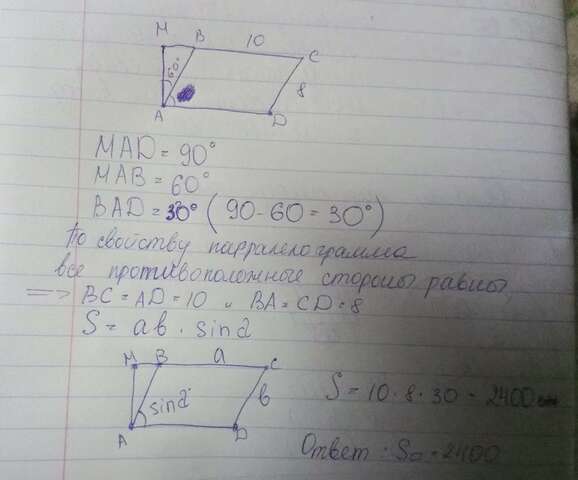 М В 10 С
60°
8
А D
MAD = 90°
MAB = 60°
BAD = 30° (90 - 60 = 30°)
По свойству парралелограмма
все противоположные стороны равны
=> BC = AD = 10 и BA = CD = 8
S = ab · sin2
М В a С
sin2 b
А D
S = 10 · 8 · 30 = 2400
Ответ: S = 2400